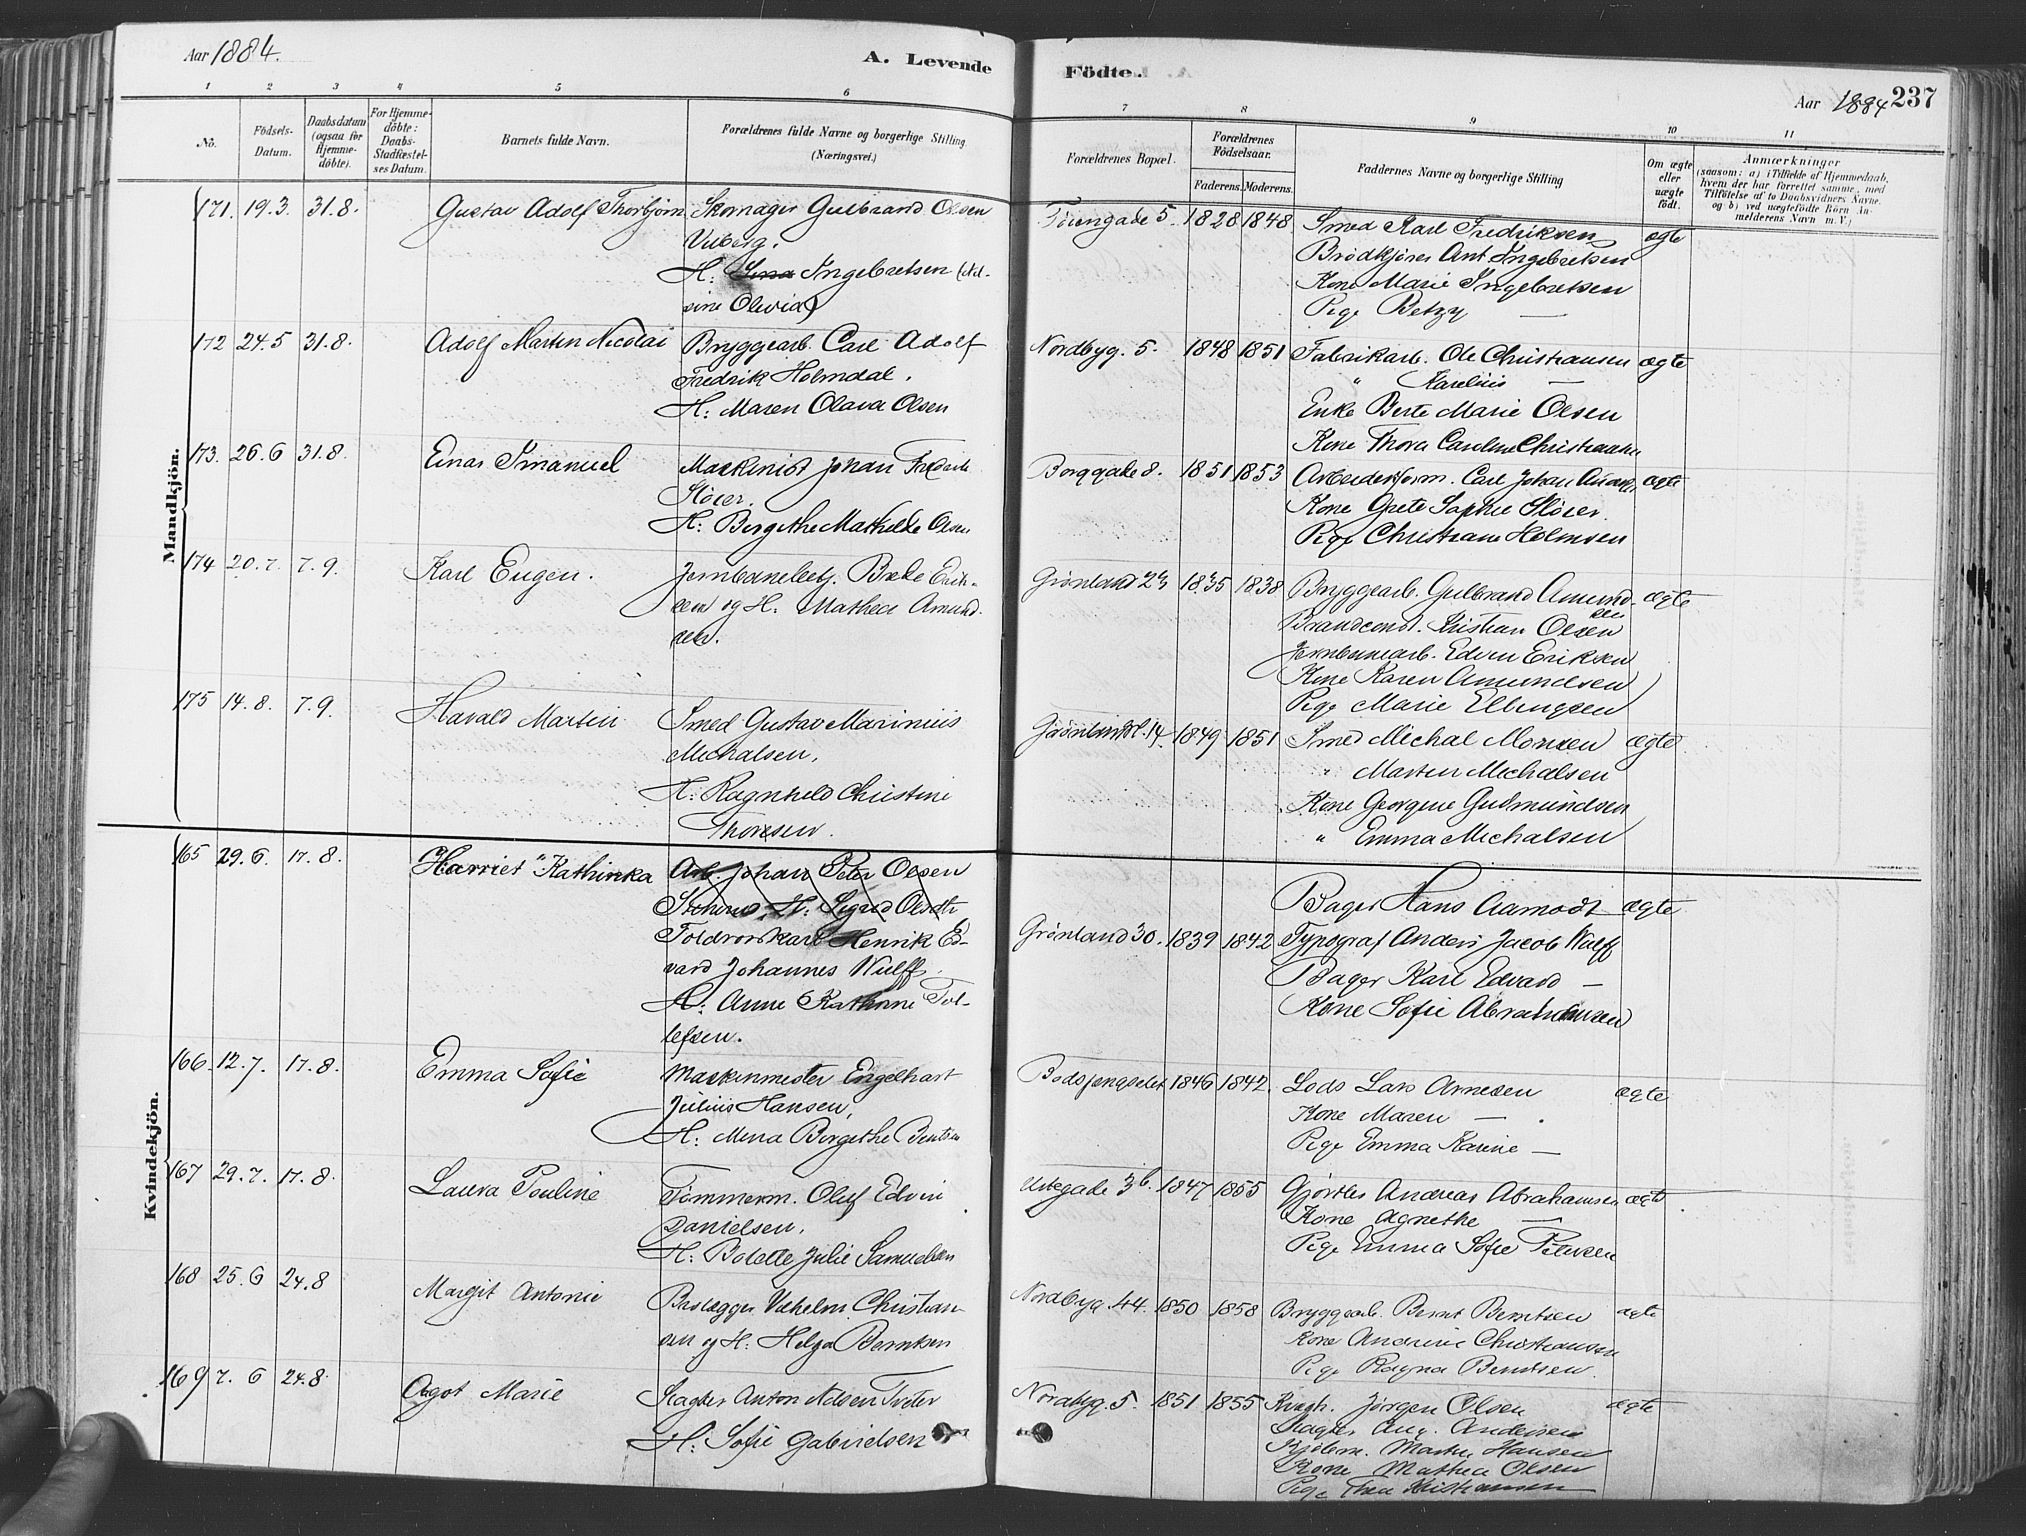 Aar 1884.
A. Levende
Födte.
Aar 1884 237
1 2 3 4 5 6
7 8 9 10 11
No.
Födsels-Datum.
Daabsdatum (ogsaa for Hjemme-döbte).
For Hjemme-döbte: Daabs-Stadfæstel-ses Datum.
Barnets fulde Navn.
Forældrenes fulde Navne og borgerlige Stilling (Næringsvei.)
Forældrenes Bopæl.
Forældrenes Födselsaar.
Faderens. Moderens.
Faddernes Navne og borgerlige Stilling
Om ægte eller uægte födt.
Anmærkninger
(saasom: a) i Tilfælde af Hjemmedaab, hvem der har forrettet samme, med Tilföielse af to Daabsvidners Navne, og b) ved uægtefödte Börn An-melderens Navn m. V.)
Mandkjön.
171. 19.3. 31.8. Gustav Adolf Thorbjørn Skomager Gulbrand Olsen
Viiberg.
H: Ingebretsen
Olivia)
Tøiengade 5. 1828 1848 Smed Karl Fredriksen ægte
Brødkjører Ant. Ingebretsen
Kone Marie Ingebretsen
Pige Betzy —
172 24.5 31.8. Adolf Martin Nicolai Bryggearb. Carl Adolf
Fredrik Holmdal.
H: Maren Olava Olsen
Nordbyg. 5. 1848 1851 Fabrikarb. Ole Christiansen ægte
" Karelius —
Enke Berte Marie Olsen
Kone Thora Caroline Christiansen
173. 26.6 31.8. Einar Imanuel Maskinist Johan Fredrik
Sløier.
H: Bergithe Mathilde Olsen
Borggade 8. 1851 1853 Arbeidsform. Carl Johan ægte
Kone Grete Sophie Sløier.
Pige Christiane Holmsen
174 20.7. 7.9. Karl Eugen. Jernbanebetj. Brede Erik-
sen og H: Mathea Amund-
sen.
Grønland 23 1835 1838 Bryggearb. Gulbrand Amund- ægte
sen
Brandconst. Kristian Olsen
Jernbanearb. Edvin Eriksen
Kone Karen Amundsen
Pige Marie Ellingsen
175 14.8. 7.9. Harald Martin Smed Gustav Marinius
Michalsen.
H: Ragnhild Christine
Thorsen.
Grønlandsl. 14. 1849 1851 Smed Michal Monsen ægte
" Martin Michalsen
Kone Georgine Gudmundsen
" Emma Michalsen
Kvindekjön.
165 29.6. 17.8. Harriet Kathinka Arb. Johan Peter Olsen
H: Sigrid
Toldrorskarl Henrik Ed-
vard Johannes Wulff.
H: Anne Kathrine Tol-
lefsen.
Grønland 30. 1839 1842 Bager Hans Aamodt ægte
Typograf Anders Jacob Wulff
Bager Karl Edvard —
Kone Sofie Abrahamsen
166. 12.7. 17.8. Emma Sofie Maskinmester Engelhart
Julius Hansen,
H: Mina Bergithe Bentsen
Bodsfengselet 1846 1842. Lods Lars Arnesen ægte
Kone Maren —
Pige Emma Karine —
167 29.7. 17.8. Laura Pouline Tømmerm. Oluf Edvin
Danielsen.
H: Bolette Julie Samuelsen
Urtegade 36. 1847 1855 Gjørtler Andreas Abrahamsen ægte
Kone Agnethe —
Pige Emma Sofie Petersen
168 25.6 24.8 Margit Antonie Brolægger Vilhelm Christian-
sen og H: Helga Berntsen
Nordbyg. 44. 1850 1858 Bryggearb. Bernt Berntsen ægte
Kone Andrine Christiansen
Pige Ragna Berntsen.
169 7.6 24.8. Agot Marie Slagter Anton Nilsen Tveter
H: Sofie Gabrielsen
Nordbyg. 5. 1851 1855 Jørgen Olsen ægte
Slagter Aug. Andersen
Martin Hansen
Kone Mathea Olsen
Pige Thea Kristiansen